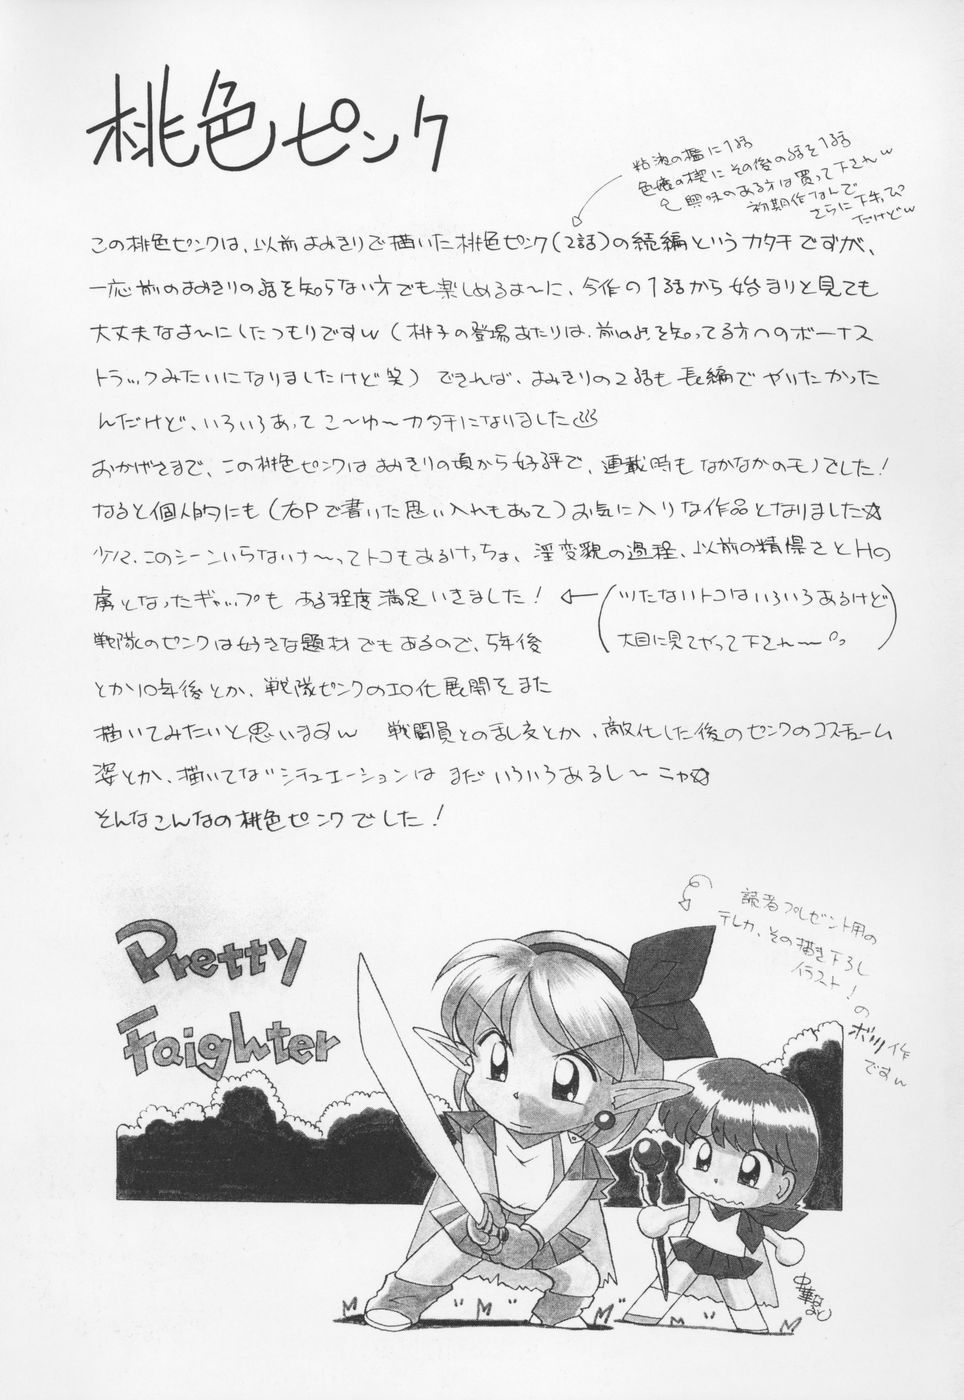 桃色ピンク
粘液の檻に1話
色癌の楔にその後の話を1話
興味のある方は買って下されw
初期作なんで
さらに下手っぴ
だけどw
この桃色ピンクは、以前よみきりで描いた桃色ピンク(2話)の続編というカタチですが、
一応前のよみきりの話を知らない方でも楽しめるよ〜に、今作の1話から始まりと見ても
大丈夫なよ〜にしたつもりですw(桃子の登場あたりは、前のよみを知ってる方へのボーナス
トラックみたいになりましたけど笑)できれば、よみきりの2話も長編でやりたかった
んだけど、いろいろあってこ〜ゆ〜カタチになりました
おかげさまで、この桃色ピンクはよみきりの頃から好評で、連載時もなかなかのモノでした!
なると個人的にも(右Pで書いた思い入れもあって)お気に入りな作品となりました☆
少々、このシーンいらないな〜ってトコもあるけっちょ、淫変貌の過程、以前の精悍さとHの
虜となったギャップもある程度満足いきました!
(ツたないトコはいろいろあるけど
大目に見てやって下され〜)
戦隊のピンクは好きな題材でもあるので、5年後
とか10年後とか、戦隊ピンクのエロ化展開をまた
描いてみたいと思いますw 戦闘員との乱交とか、敵化した後のピンクのコスチューム
姿とか、描いてないシチュエーションはまだいろいろあるし〜ニャ☆
そんなこんなの桃色ピンクでした!
読者プレゼント用の
テレカ、その描き下ろし
イラスト!
の
ボツ作
ですw
Pretty
Faighter
中華なると